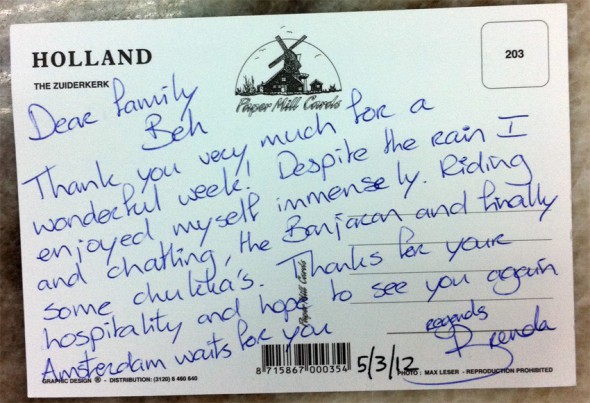 HOLLAND
THE ZUIDERKERK
203
Paper Mill Cards
Dear family
Beh
Thank you very much for a
wonderful week! Despite the rain I
enjoyed myself immensely. Riding
and chatting, the Banjaran and finally
some chukka's. Thanks for your
hospitality and hope to see you again
Amsterdam waits for you
regards
Brenda
5/3/12
Paper Mill Cards
8 715867 000354
GRAPHIC DESIGN ® - DISTRIBUTION: (3120) 6 460 640
PHOTO: MAX LESER - REPRODUCTION PROHIBITED